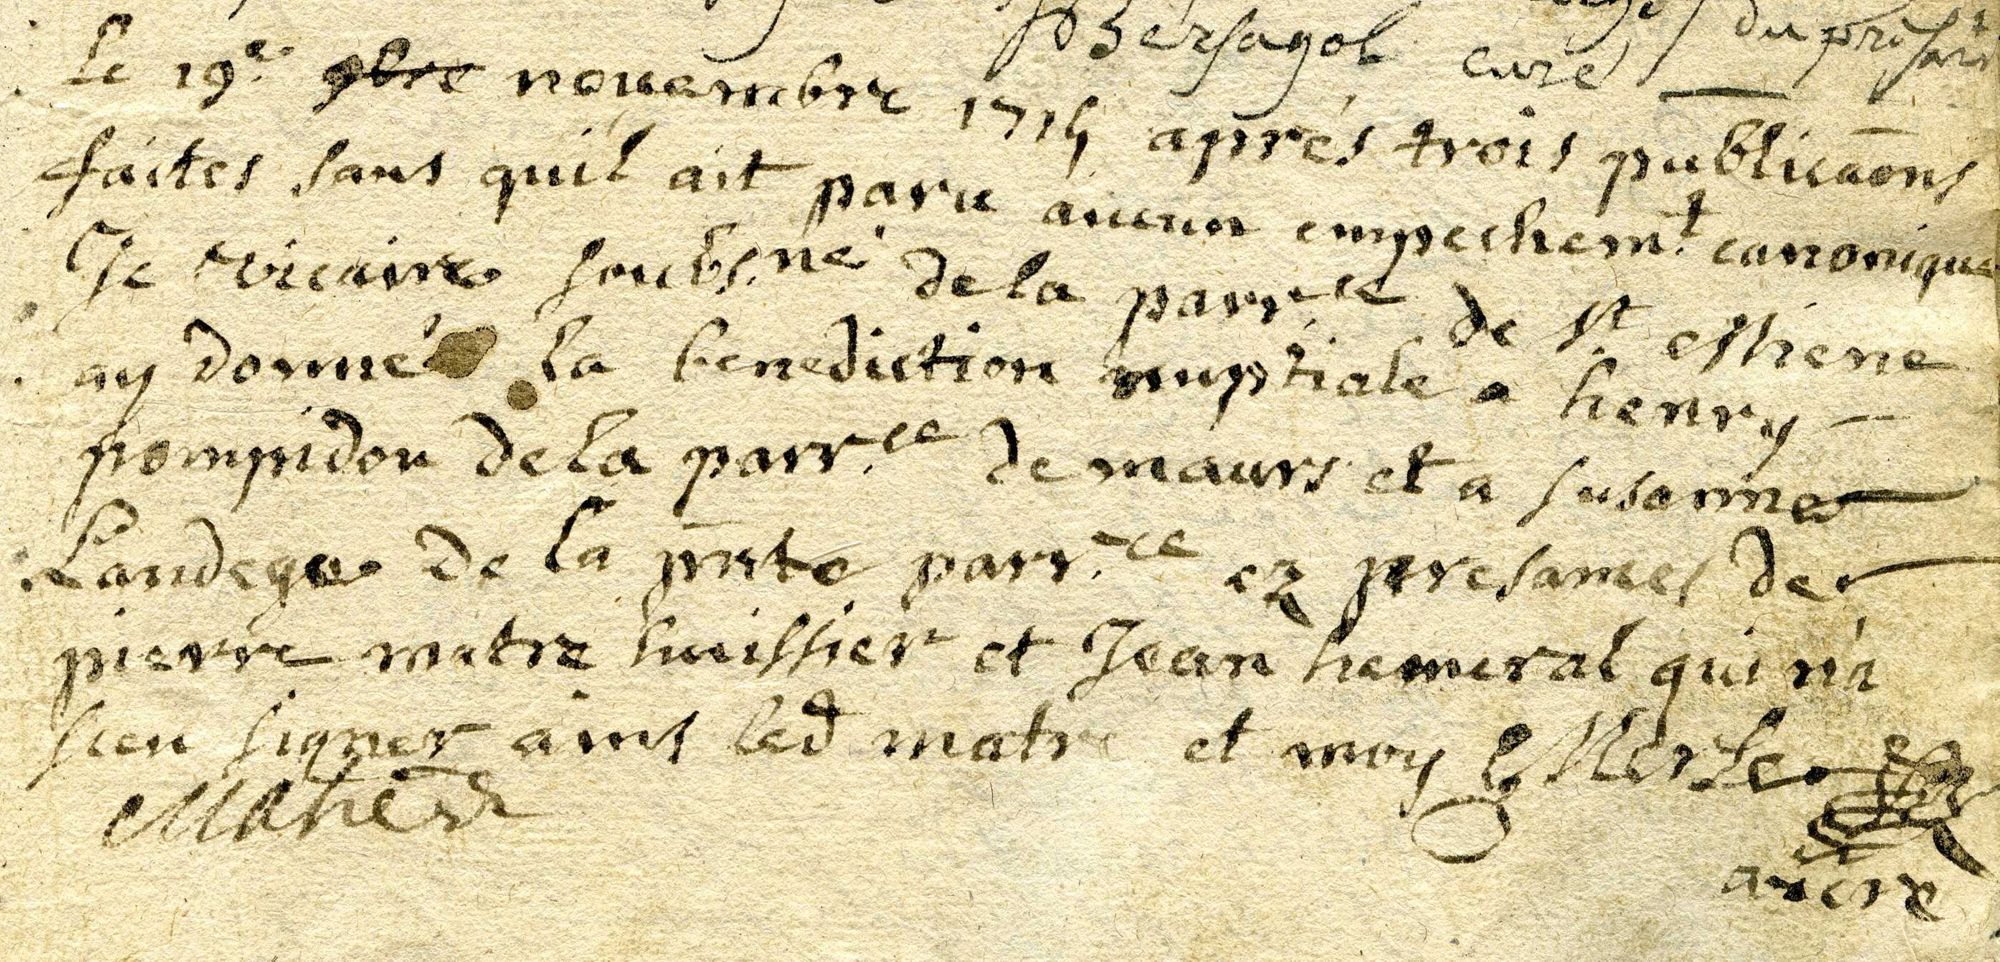 Bersagol curé du presan
Le 19e 9bre novambre 1715 aprés trois publicaons
faites sans quil ait paru aucun empechemt. canonique
Je vicaire soubs.né de la parr.ce de st estiene
ay donné la benediction nuptiale a henry
pompidou de la parr.ce de maurs et a susanne
Landege de la pnte parr.ce ez presances de
pierre matre huissier et Jean hameral qui n'a
sceu signer ains led matre et moy Merle
vicre